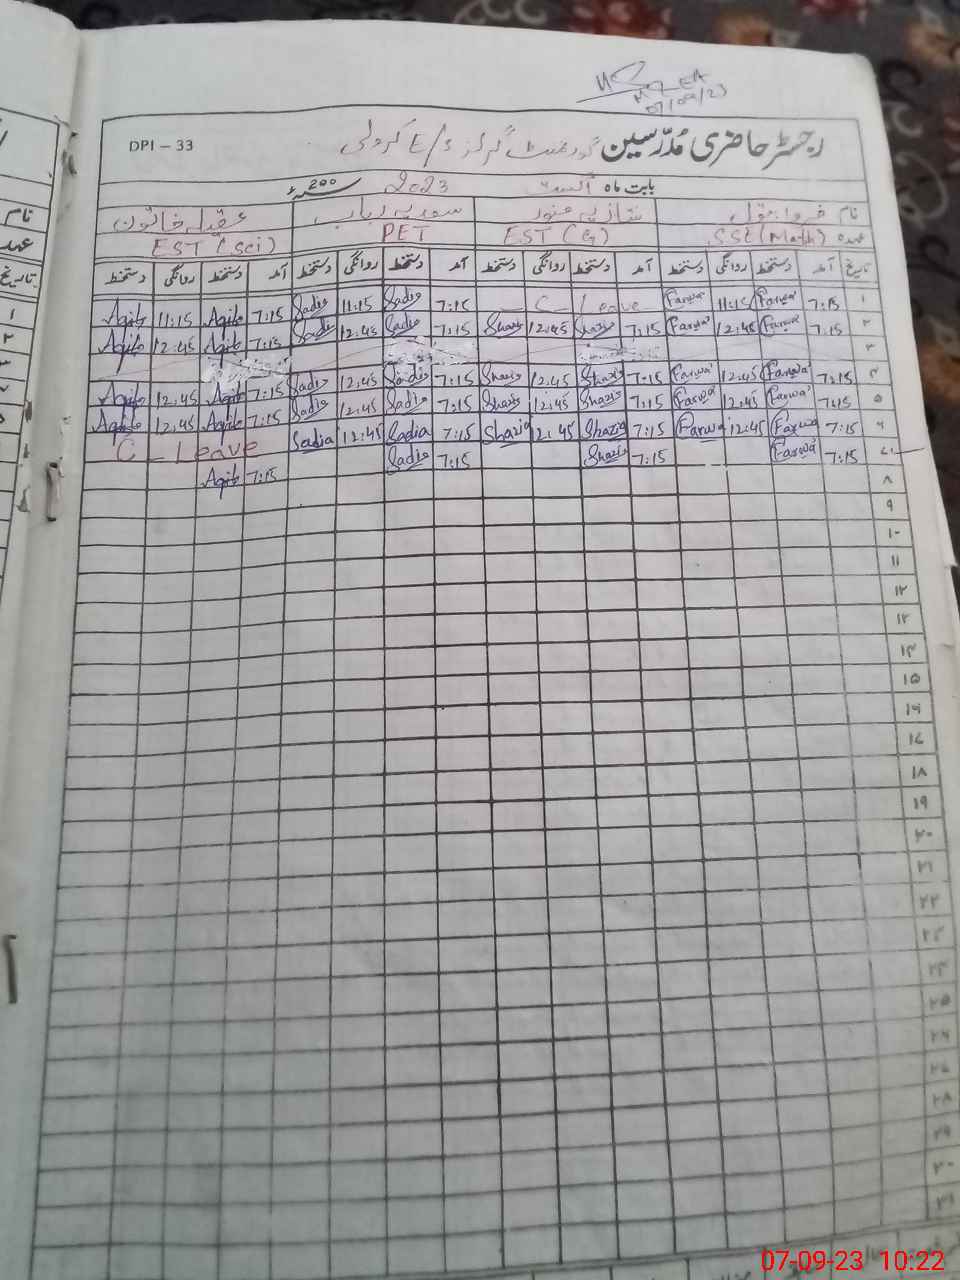 07/09/23
DPI - 33
رجسٹر حاضری مُدرّسین گورنمنٹ گرلز E/S کرولی
بابت ماہ اگست 2023 200
نام فروا بتول شازیہ منور سعدیہ رباب عقیلہ خاتون
عہدہ SSE (Math) EST (G) PET EST (Sci)
تاریخ آمد دستخط روانگی دستخط آمد دستخط روانگی دستخط آمد دستخط روانگی دستخط آمد دستخط روانگی دستخط
۱ 7:15 Farwa 11:15 Farwa C - Leave 7:15 Sadia 11:15 Sadia 7:15 Aqila 11:15 Aqila
۲ 7:15 Farwa 12:45 Farwa 7:15 Shazia 12:45 Shazia 7:15 Sadia 12:45 Sadia 7:15 Aqila 12:45 Aqila
۳
۴ 7:15 Farwa 12:45 Farwa 7:15 Shazia 12:45 Shazia 7:15 Sadia 12:45 Sadia 7:15 Aqila 12:45 Aqila
۵ 7:15 Farwa 12:45 Farwa 7:15 Shazia 12:45 Shazia 7:15 Sadia 12:45 Sadia 7:15 Aqila 12:45 Aqila
۶ 7:15 Farwa 12:45 Farwa 7:15 Shazia 12:45 Shazia 7:15 Sadia 12:45 Sadia C - Leave
۷ 7:15 Farwa 7:15 Shazia 7:15 Sadia 7:15 Aqila
۸
۹
۱۰
۱۱
۱۲
۱۳
۱۴
۱۵
۱۶
۱۷
۱۸
۱۹
۲۰
۲۱
۲۲
۲۳
۲۴
۲۵
۲۶
۲۷
۲۸
۲۹
۳۰
۳۱
نام
عہدہ
تاریخ
۱
۲
۳
07-09-23 10:22